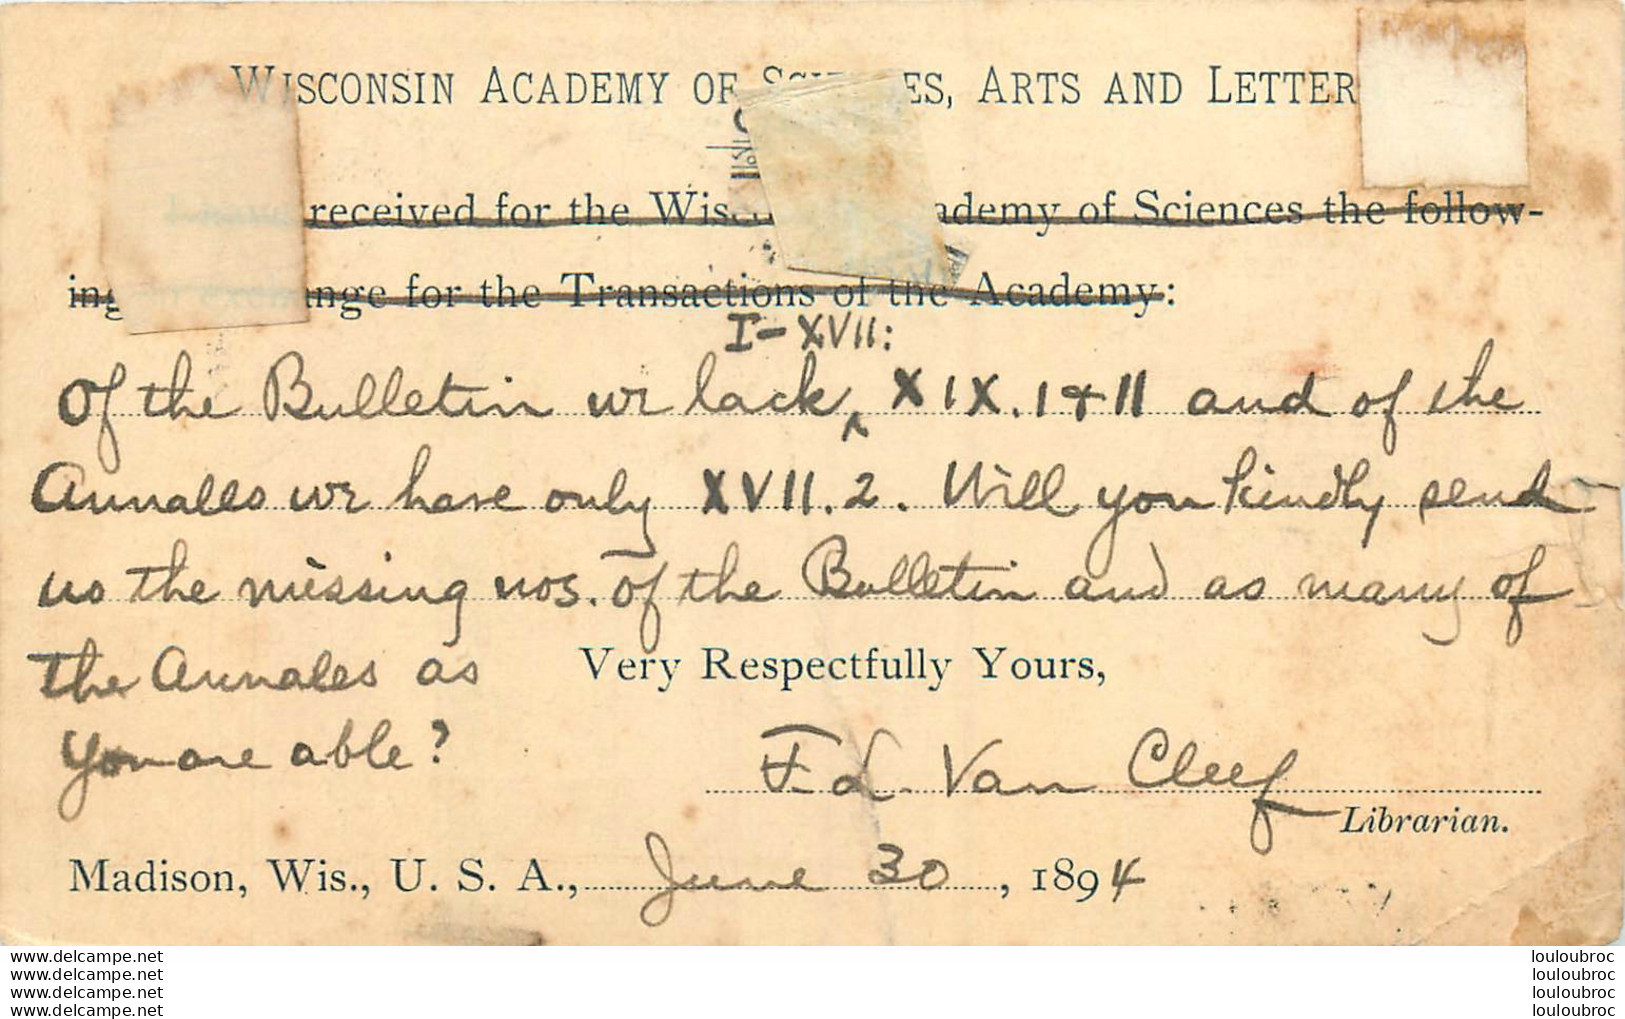 WISCONSIN ACADEMY OF SCIENCES, ARTS AND LETTER
received for the Wisc ademy of Sciences the follow-
ing in exchange for the Transactions of the Academy:
I-XVII:
Of the Bulletin we lack ‸ XIX. 1 & 11 and of the
Annales we have only XVII. 2. Will you kindly send
us the missing nos. of the Bulletin and as many of
the Annales as
Very Respectfully Yours,
you are able?
F. L. Van Cleef
Librarian.
Madison, Wis., U. S. A., June 30, 1894
www.delcampe.net louloubroc
www.delcampe.net louloubroc
www.delcampe.net louloubroc
www.delcampe.net louloubroc